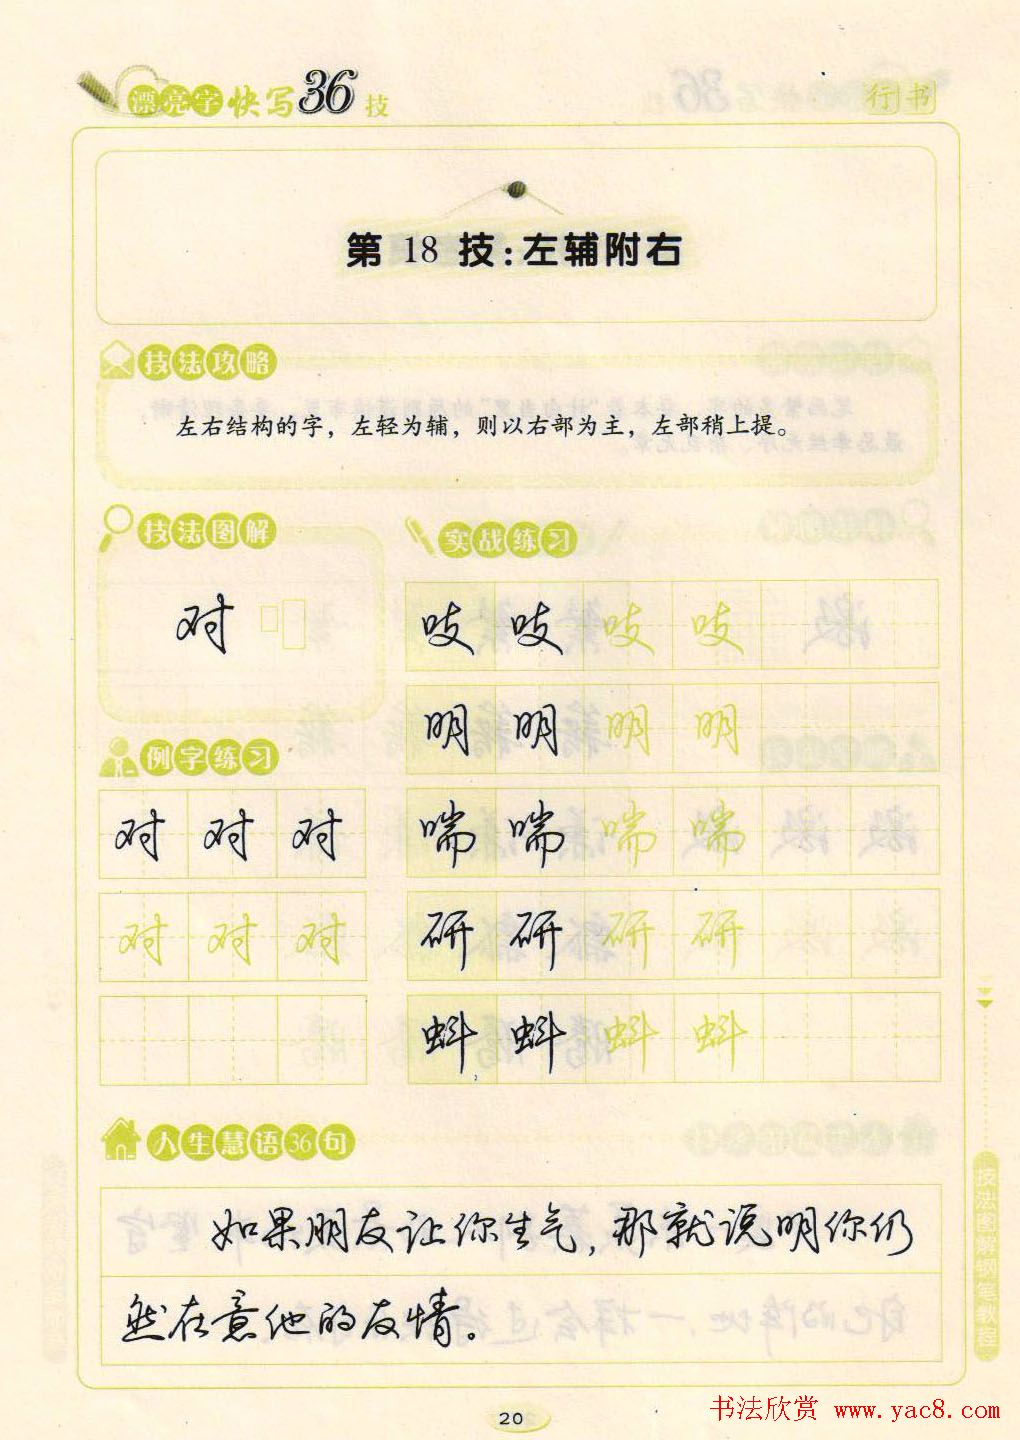 漂亮字快写36技
行书
第 18 技：左辅附右
技法攻略
左右结构的字，左轻为辅，则以右部为主，左部稍上提。
技法图解
对
实战练习
吱 吱 吱 吱
明 明 明 明
喘 喘 喘 喘
研 研 研 研
蚪 蚪 蚪 蚪
例字练习
对 对 对
对 对 对
人生慧语36句
如果朋友让你生气，那就说明你仍
然在意他的友情。
技法图解钢笔教程
20
书法欣赏 www.yac8.com